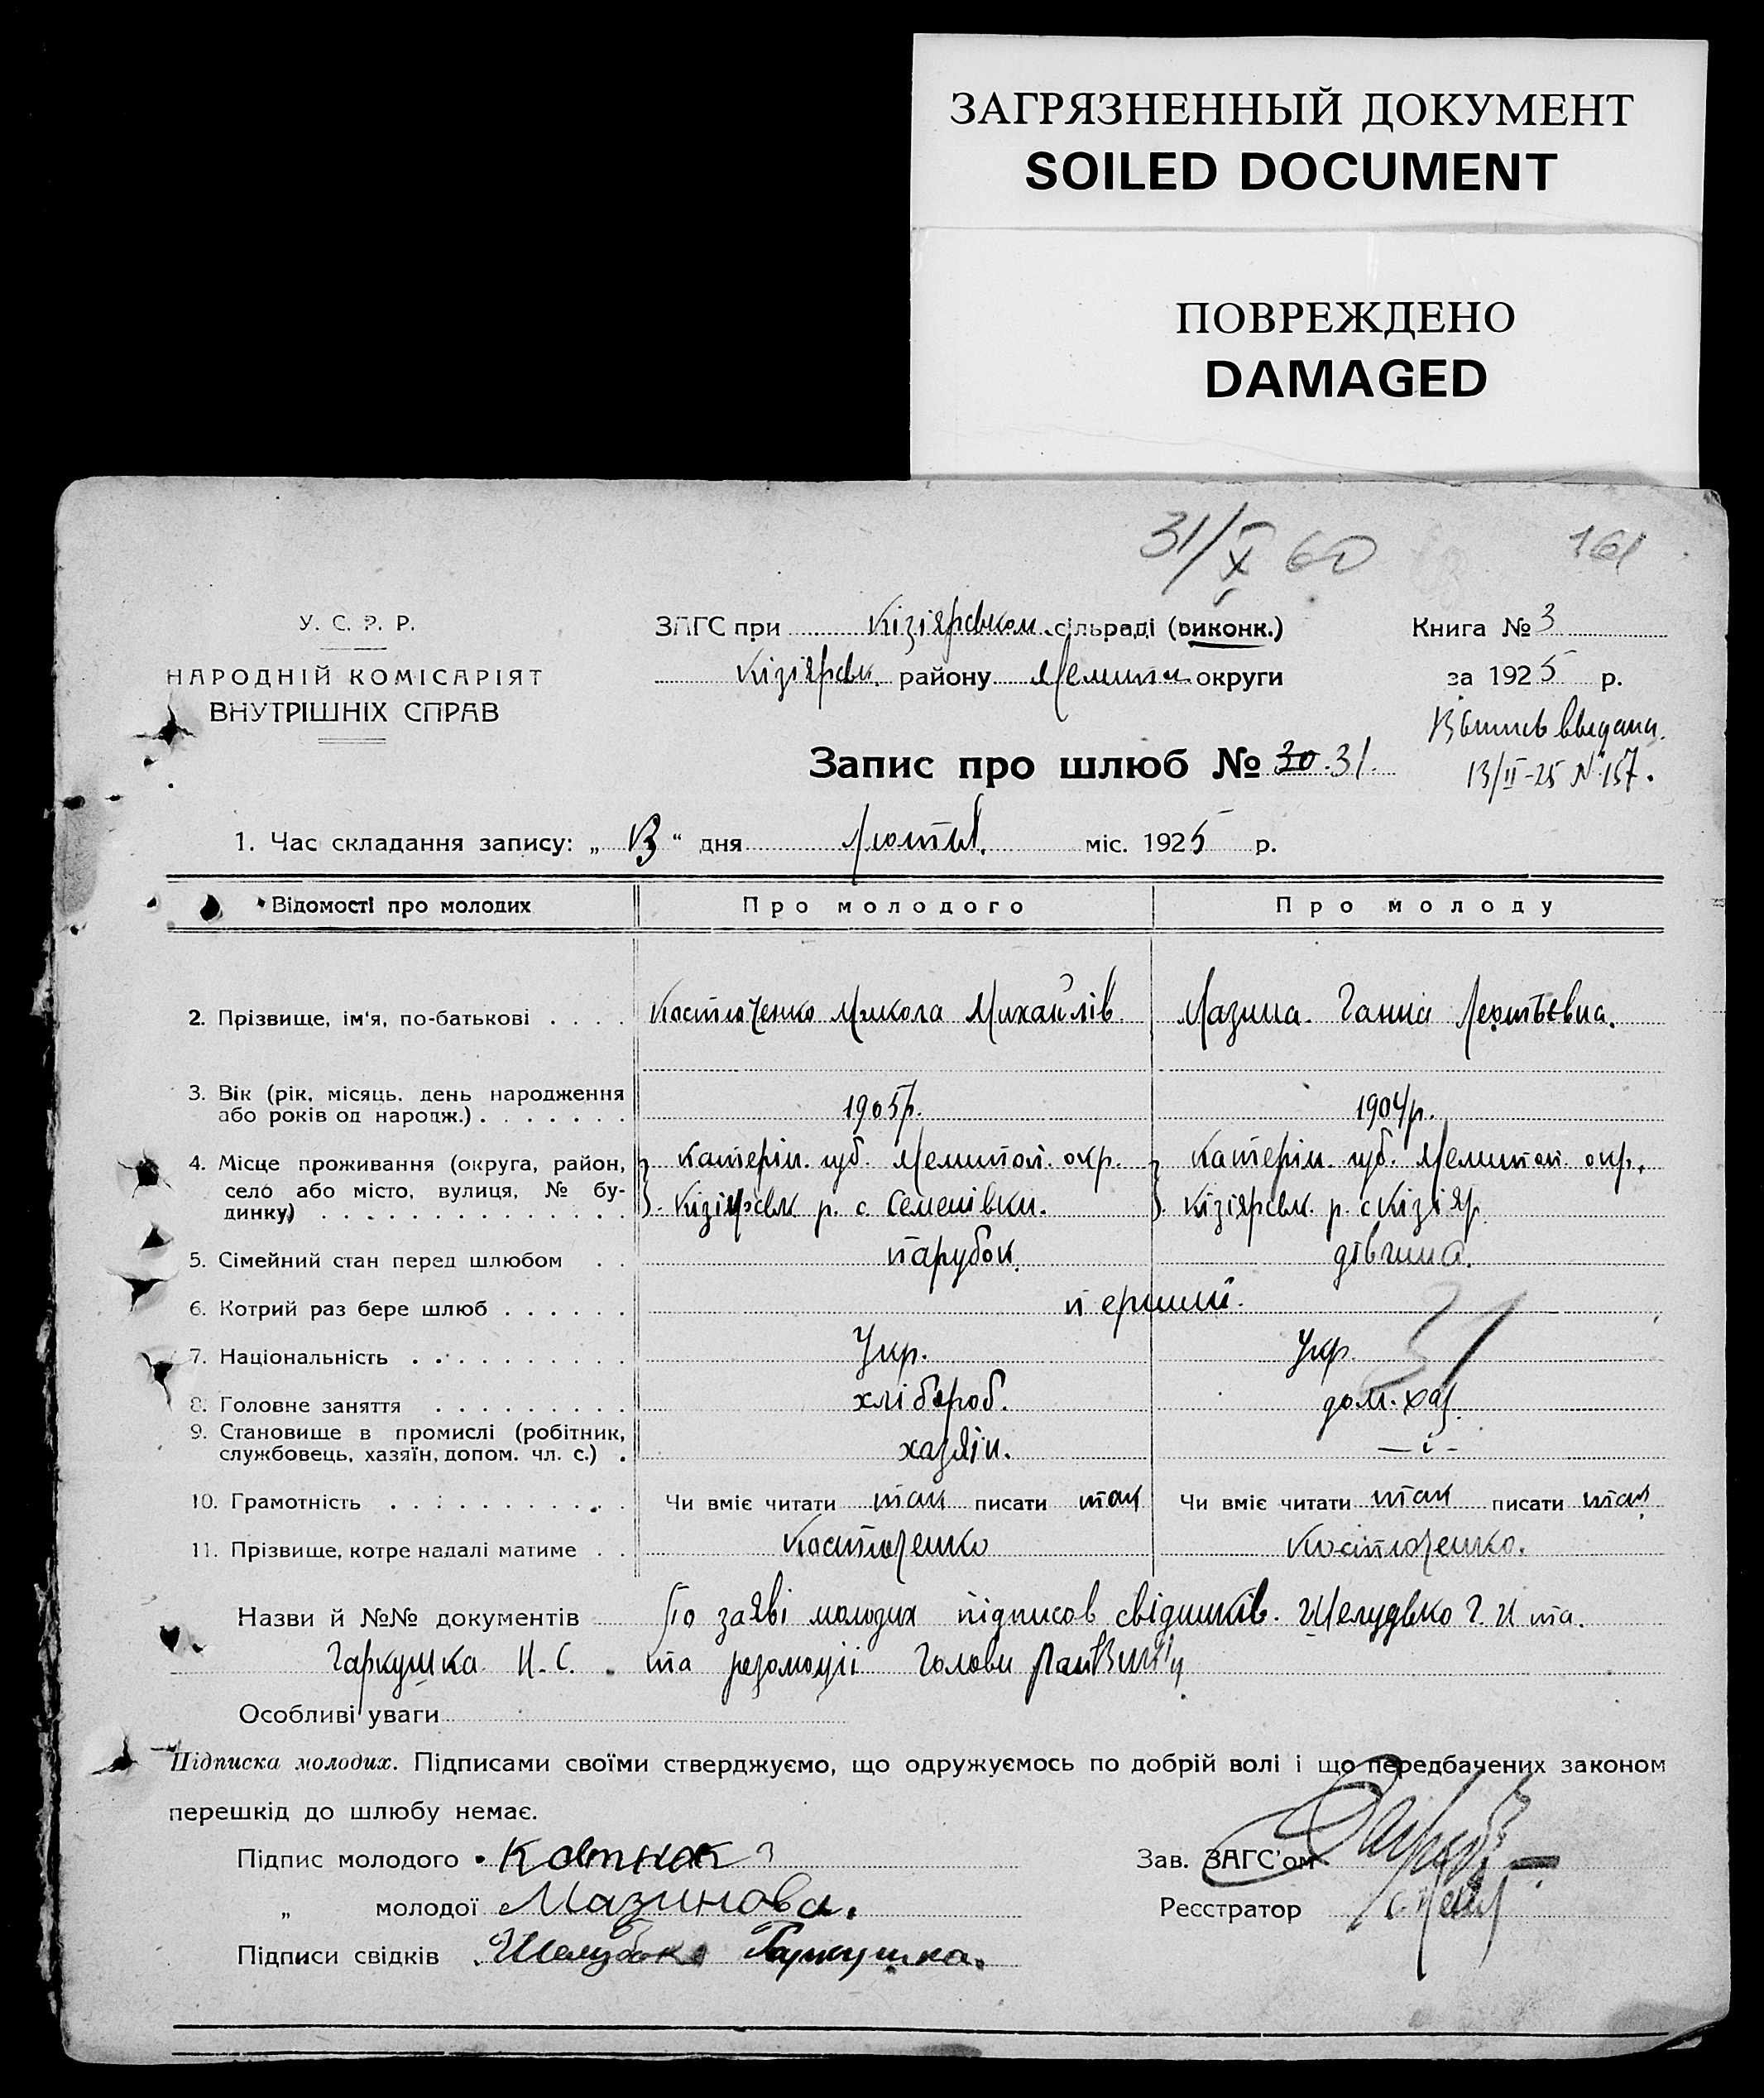 ЗАГРЯЗНЕННЫЙ ДОКУМЕНТ
SOILED DOCUMENT
ПОВРЕЖДЕНО
DAMAGED
31/X 60
161
У. С. Р. Р.
НАРОДНІЙ КОМІСАРІЯТ
ВНУТРІШНІХ СПРАВ
ЗАГС при Кізіярському сільраді (виконк.)
Кізіярськ. району Мелитп. округи
Книга № 3
за 1925 р.
Выпись выдана.
13/II-25 № 157.
Запис про шлюб № 30. 31.
1. Час складання запису: „ 13 “ дня Лютия. міс. 1925 р.
Відомості про молодих Про молодого Про молоду
2. Прізвище, ім'я, по-батькові Костюченко Микола Михайлів. Мазина. Ганна Леонтьевна.
3. Вік (рік, місяць, день народження
або років од народж.) 1905р. 1904р.
4. Місце проживання (округа, район, Катерін. губ. Мелитоп. окр. Катерін. губ. Мелитоп. окр.
село або місто, вулиця, № бу-
динку) Кізіярськ р. с. Семенівки. Кізіярськ. р. с Кізіяр.
5. Сімейний стан перед шлюбом парубок. дівчина.
6. Котрий раз бере шлюб перший.
7. Національність Укр. Укр.
31
8. Головне заняття хлібороб. дом. хаз.
9. Становище в промислі (робітник,
службовець, хазяїн, допом. чл. с.) хазяін. — і -
10. Грамотність Чи вміє читати так писати так Чи вміє читати так писати так
11. Прізвище, котре надалі матиме Костюченко Костюченко.
Назви й №№ документів По заяві молодих підписов свідників. Шелудько Г. И та.
Гаркушка И. С. та резолюціі Голови
Особливі уваги
Підписка молодих. Підписами своїми стверджуємо, що одружуємось по добрій волі і що передбачених законом
перешкід до шлюбу немає.
Підпис молодого
Зав. ЗАГС'ом
„ молодої Мазинова.
Реєстратор
Підписи свідків Шелудько Гаркушка.